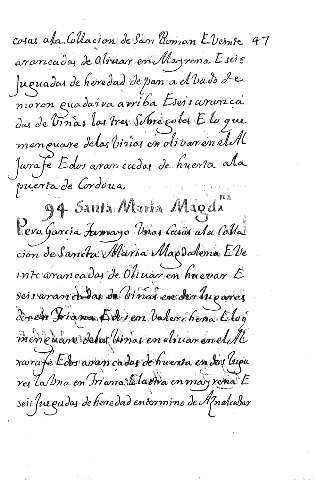 cosas ala Collacion de San Roman E veinte 47
arancadas de Olivar en Mayrena E seis
Juguadas de heredad de pan al vado de
moron guadaira arriba E seis arança
das de Viñas las tres Sobre E lo que
menguare delas Viñas en olivar en el Al
Jarafe E dos arancadas de huerta ala
puerta de Cordova
94 Santa Maria Magdna
Pera Garcia Tamayo Unas Casas ala Colla
cion de Sancta Maria Magdalena E Ve
inte arancadas de Olivar en huevar E
seis arancadas de Viñas en dos lugares
dos en Triana E dos en Valencihena E lo q
menguare delas Viñas en olivar en el Al
xarafe E dos arancadas de huerta en dos luga
res la Una en Triana E la otra en mayrena E
seis Juguadas de heredad en termino de Aznalcabar